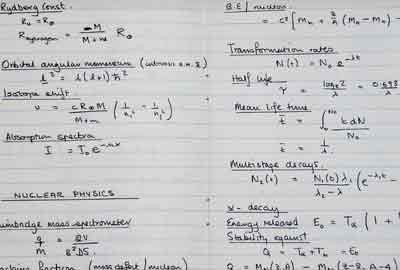 Rydberg Const.
R∞ = R∞
R hydrogen = M / M+m R∞
Orbital angular momentum
l² = l(l+1)ħ²
Isotope shift.
υ = cR∞M / M+m (1/n₁² - 1/n₂²)
Absorption spectra
I = I₀e
NUCLEAR PHYSICS
mass spectrometer
q/M = 2V / B²DS.
fraction (mass defect / nucleon)
B.E / nucleon
= c² [ Mn + Z/A (MH - Mn) -
Transformation rates
N(t) = N₀ e^-λt
Half life
τ = loge2 / λ = 0.693 / λ
Mean life time
t̄ = ∫ t dN / N₀
t̄ = 1/λ
Multistage decays.
N₂(t) = N₁(0) λ₁ / λ₂ - λ₁ (e^-λ₁t -
α - decay
Energy released E₀ = Tα (1 +
Stability against
Q = Tα + Tb = E₀
Q = (Z,A) - (Z-2, A-4)